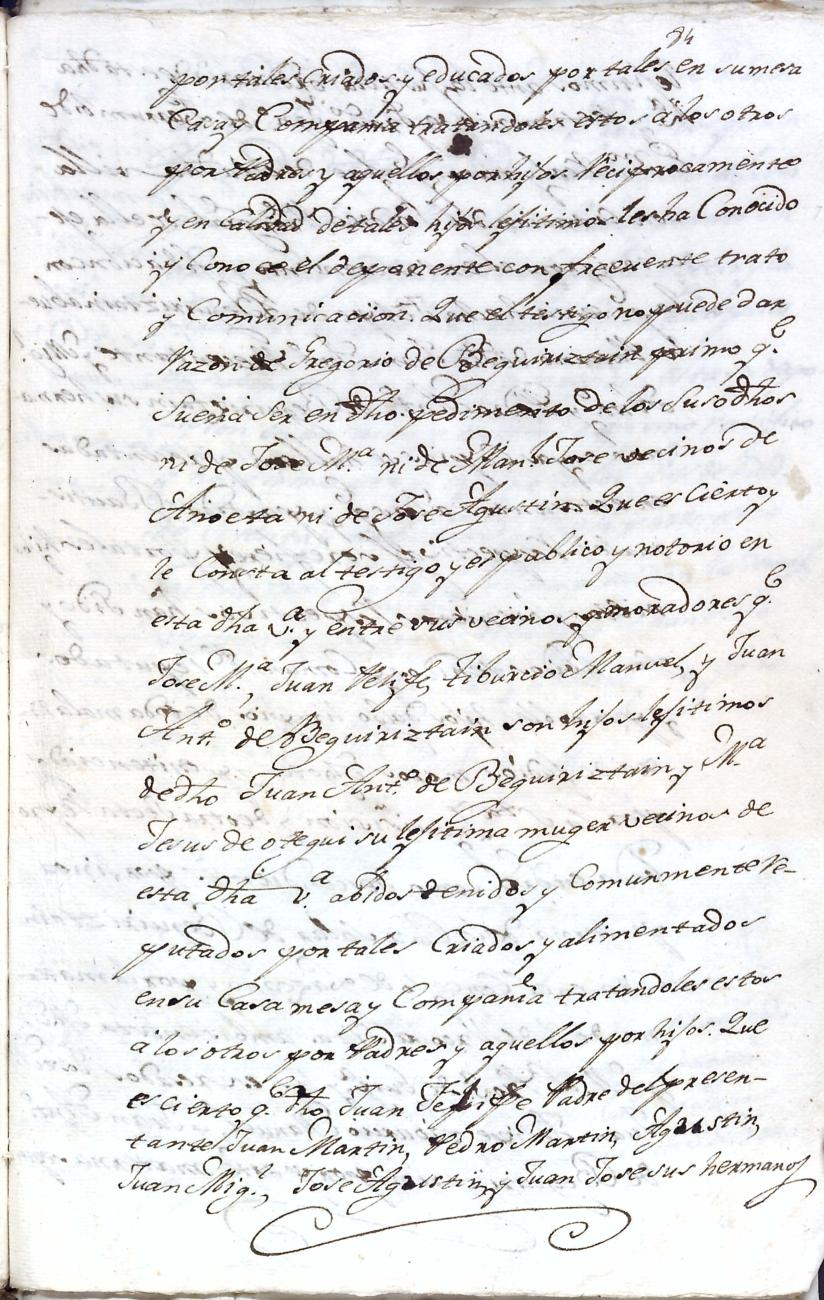 84
por tales Criados, y educados por tales en su mesa
Casa y Compania tratandoles estos â los otros
por Padres y aquellos por hijos Reciprocamente
y en Calidad de tales hijos lexitimos les ha Conocido
y Conoce el deponente con frecuente trato
y Comunicacion. Que el testigo no puede dar
Razon de Gregorio de Beguiriztain primo q.e
suena ser en dho pedimento de los Susodhos
ni de Jose M.a ni de Man.l Jose vecinos de
Anoeta ni de Jose Agustin. Que es Cierto y
le Consta al testigo y es publico y notorio en
esta dha v.a y entre sus vecinos y moradores q.e
Jose M.a, Juan Felix, Tiburcio Manuel, y Juan
Ant.o de Beguiriztain son hijos lexitimos
de dho Juan Ant.o de Beguiriztain y M.a
Jesus de otegui su lexitima muger vecinos de
esta dha v.a abidos tenidos y Comunmente Re-
putados por tales Criados y alimentados
en su Casa mesa y Compania tratandoles estos
â los otros por Padres y aquellos por hijos. Que
es cierto q.e dho Juan Felipe Padre del presen-
tante, Juan Martin, Pedro Martin, Agustin,
Juan Mig.l, Jose Agustin, y Juan Jose sus hermanos